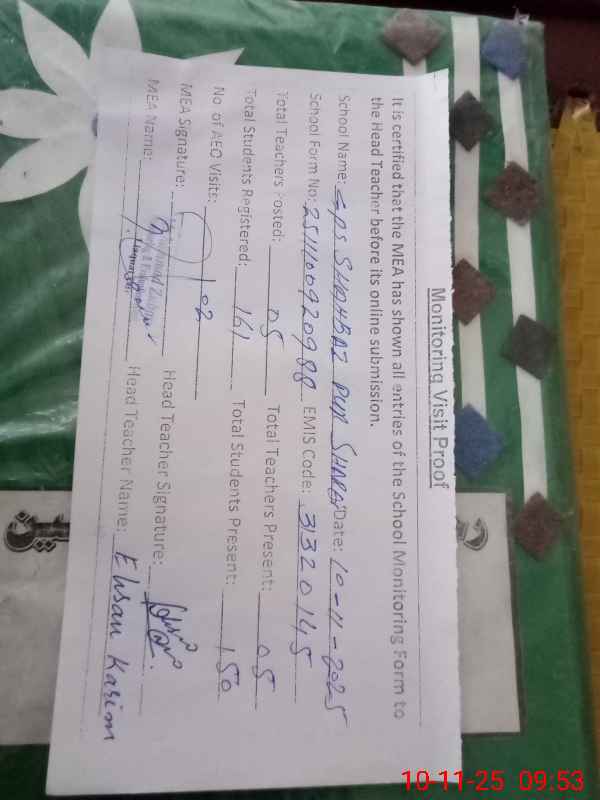 Monitoring Visit Proof
It is certified that the MEA has shown all entries of the School Monitoring Form to
the Head Teacher before its online submission.
School Name: GPS SHAHBAZ PUR SHARQI Date: 10-11-2025
School Form No: 251110092098 EMIS Code: 31320145
Total Teachers Posted: 05 Total Teachers Present: 05
Total Students Registered: 161 Total Students Present: 150
No of AEO Visits: 02
MEA Signature: Head Teacher Signature:
MEA Name: Head Teacher Name: Ehsan Karim
10-11-25 09:53